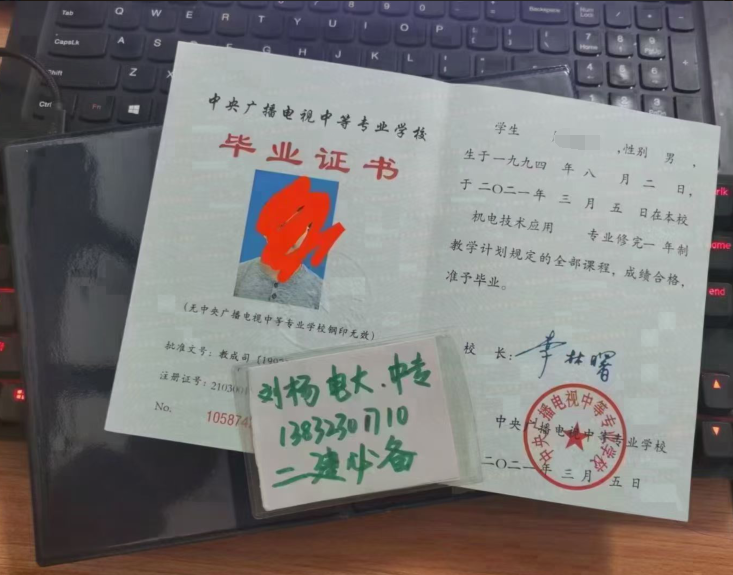 中央广播电视中等专业学校
毕业证书
(无中央广播电视中等专业学校钢印无效)
批准文号：教成司
注册证号：210300
No. 105874
学生 ，性别 男 ，
生于一九九四 年 八 月 二 日，
于 二〇二一年 三 月 五 日在本校
机电技术应用 专业修完一 年制
教学计划规定的全部课程，成绩合格，
准予毕业。
校 长：李林曙
中央广播电视中等专业学校
二〇二一年 三 月 五 日
中央广播电视中等专业学校
刘杨电大.中专
13832301710
二建必备
Tab
Q
W
E
R
T
Y
U
I
O
P
CapsLk
A
S
D
F
G
H
J
K
L
Shift
Z
X
Ctrl
Fn
Backspace
Num
Lock
7
Home
8
9
PgUp
end